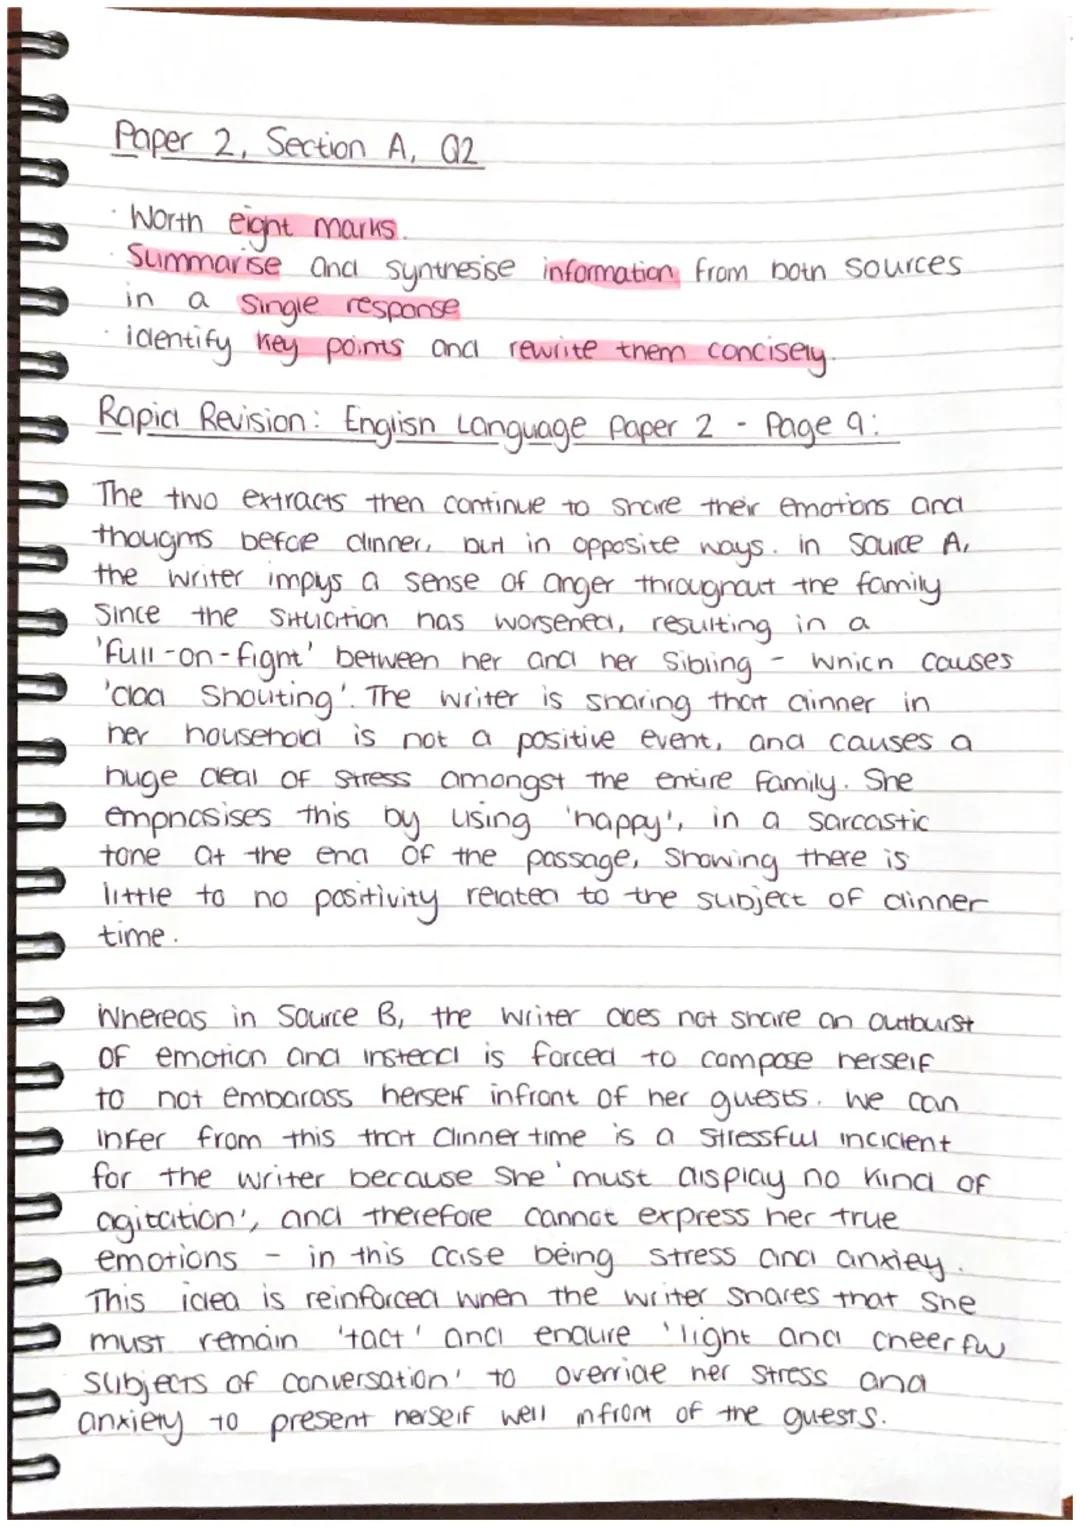 Paper 2, Section A, Q2
· Worth eight marks.
· Summarise and synthesise information from both sources
in a single response
· identify key points and rewrite them concisely.
Rapid Revision: English Language Paper 2 - Page 9:
The two extracts then continue to share their emotions and
thoughts before dinner, but in opposite ways. in source A,
the writer impys a sense of anger throughout the family
since the situation has worsened, resulting in a
'full-on-fight' between her and her sibling - which causes
'dad shouting'. The writer is sharing that dinner in
her household is not a positive event, and causes a
huge deal of stress amongst the entire family. She
emphasises this by using 'happy', in a sarcastic
tone at the end of the passage, showing there is
little to no positivity related to the subject of dinner
time.
Whereas in Source B, the writer does not share an outburst
of emotion and instead is forced to compose herself
to not embarass herself infront of her guests. We can
infer from this that dinner time is a stressful incident
for the writer because she 'must display no kind of
agitation', and therefore cannot express her true
emotions - in this case being stress and anxiey.
This idea is reinforced when the writer shares that she
must remain 'tact' and endure 'light and cheerful
subjects of conversation' to override her stress and
anxiety to present herself well infront of the guests.